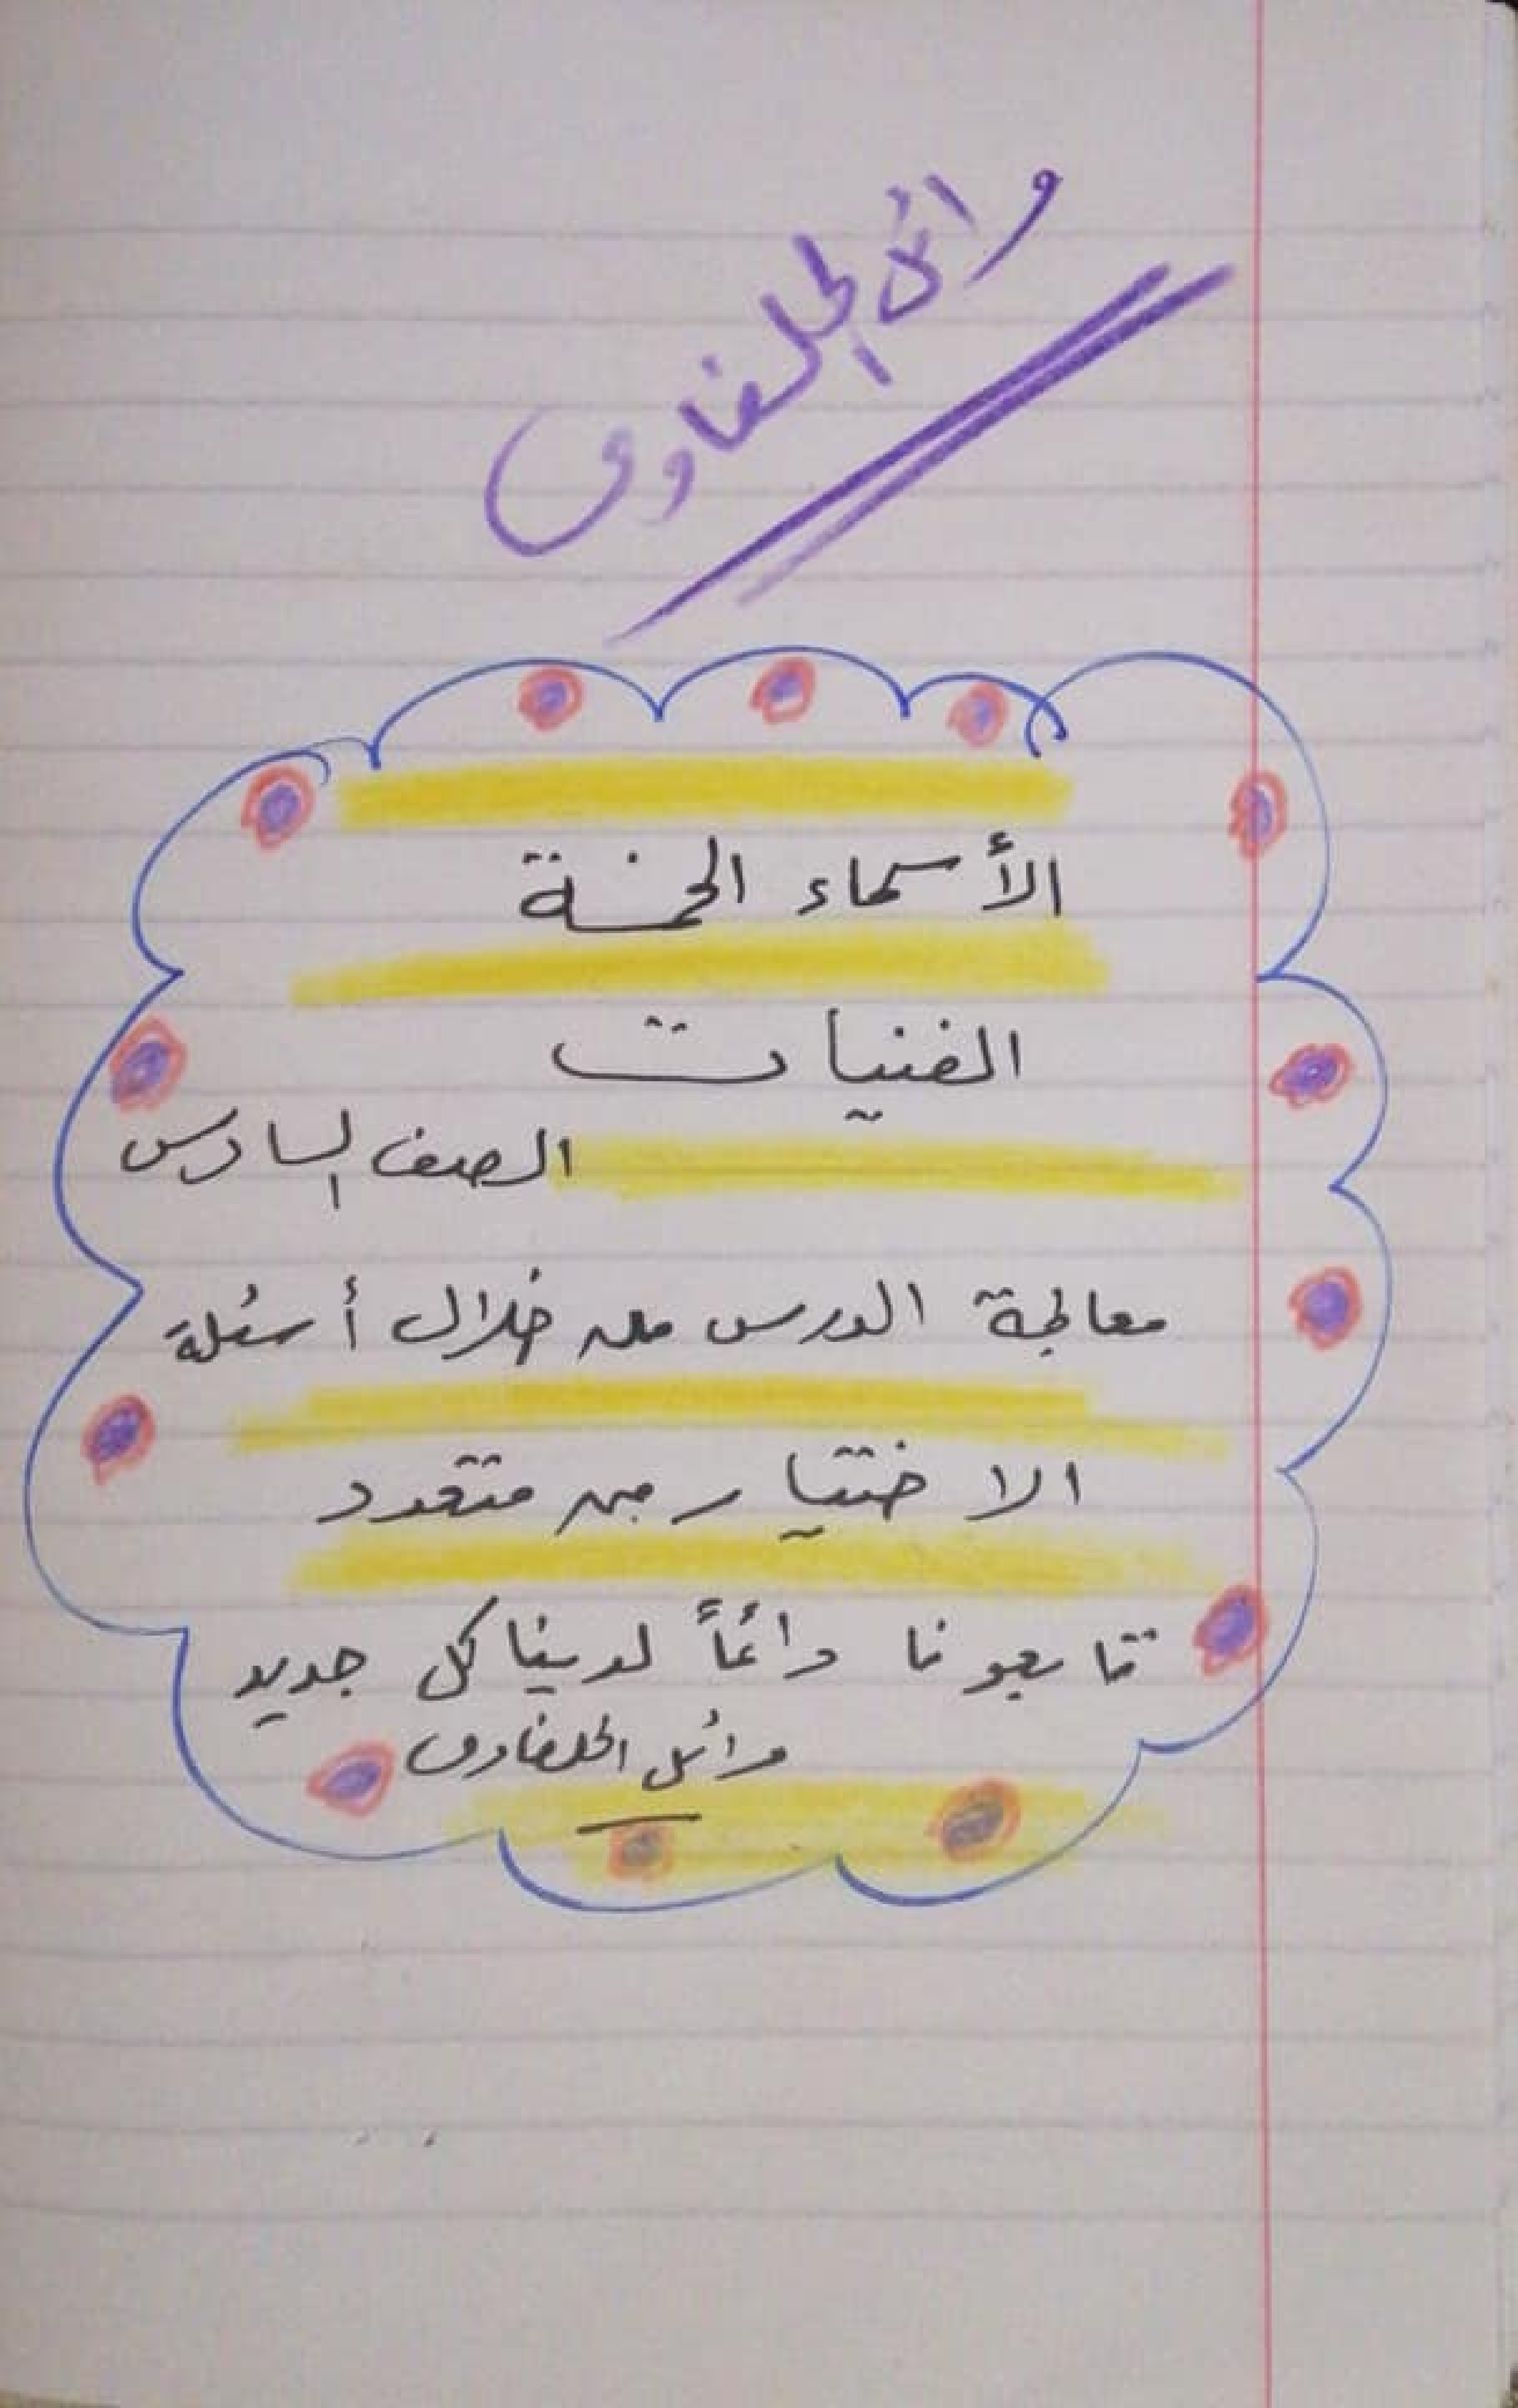 وائل الحلفاوى
الأسماء الخمسة
الفنيات
الصف السادس
معالجة الدرس من خلال أسئلة
الاختيار من متعدد
تتابعونا دائماً لدينا كل جديد
وائل الحلفاوى